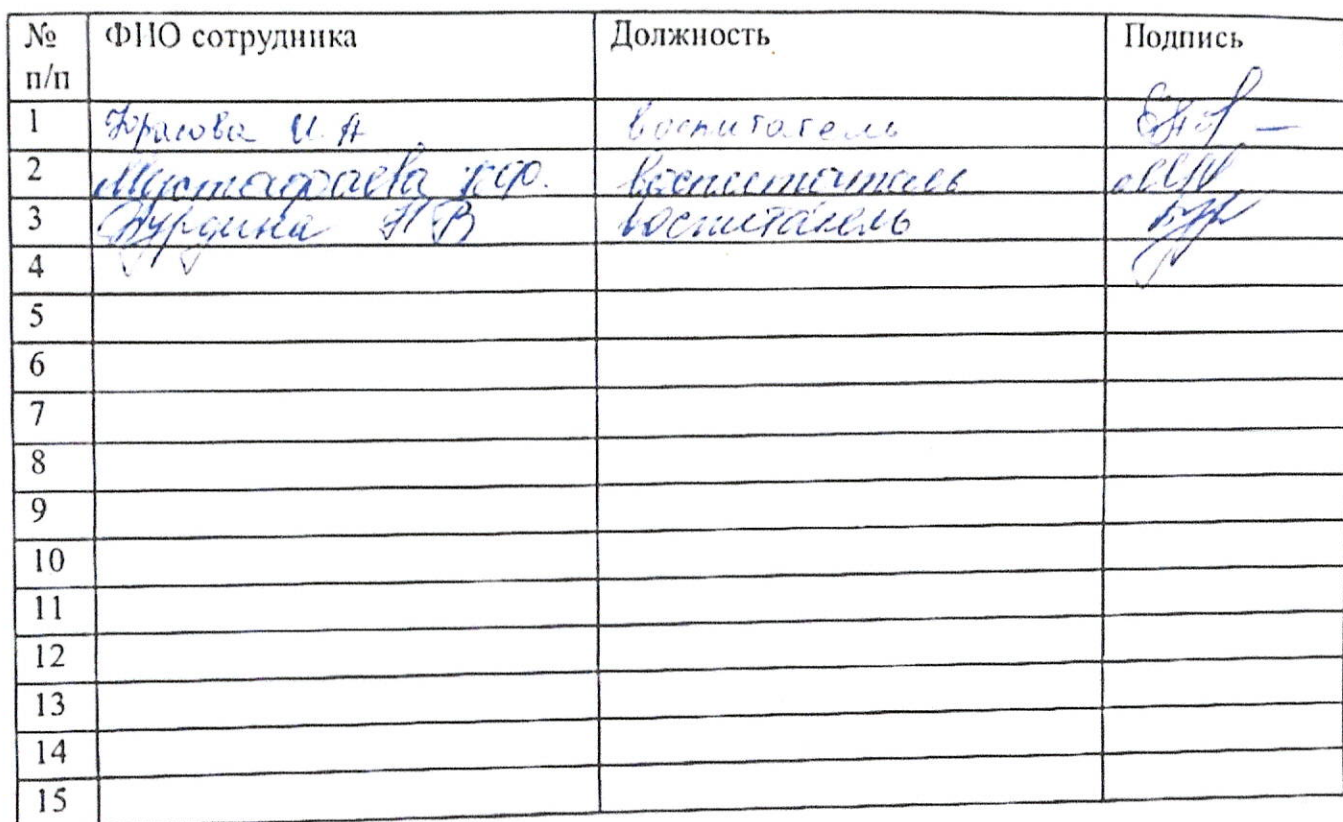 № п/п ФИО сотрудника Должность Подпись
1 И.А воспитатель
2 Мустафаева воспитатель
3 Н В воспитатель
4
5
6
7
8
9
10
11
12
13
14
15